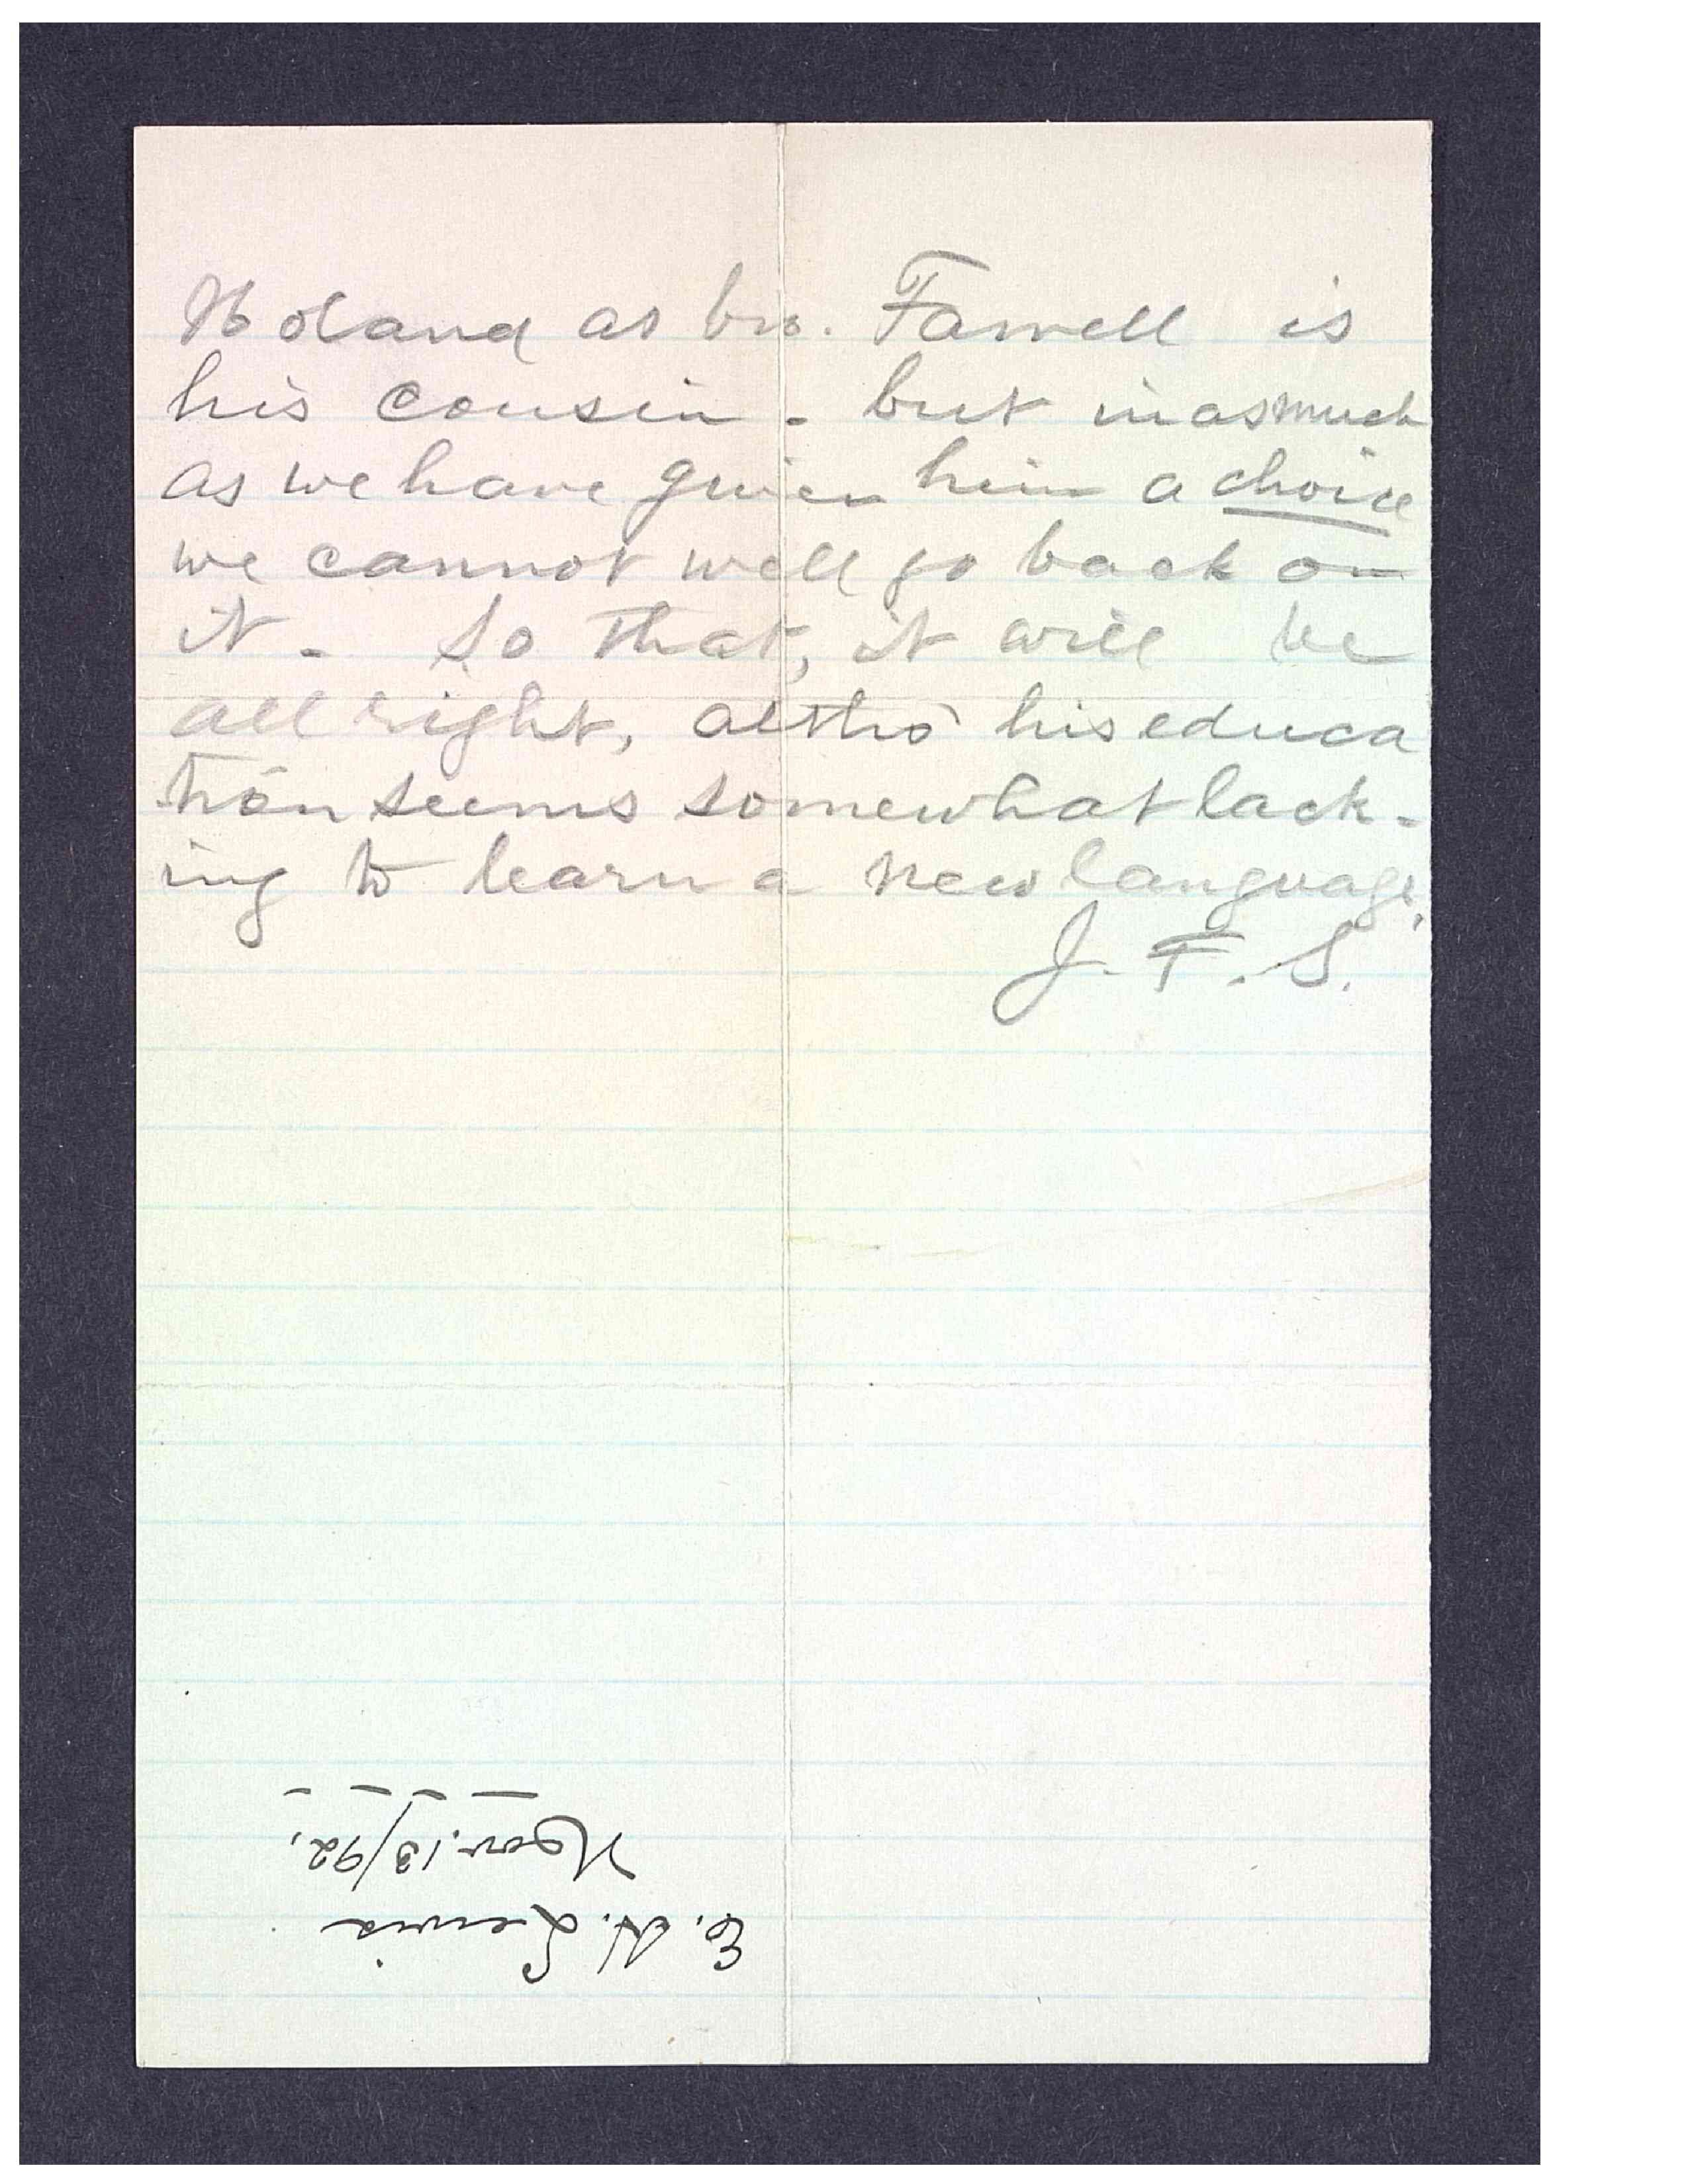 Holand as bro. Farrell is
his cousin - but inasmuch
as we have given him a choice
we cannot well go back on
it - So that, it will be
all right, altho' his educa
tion seems somewhat lack-
ing to learn a new language.
J. F. S.
E. H. Lewis
Nov. 13/92.